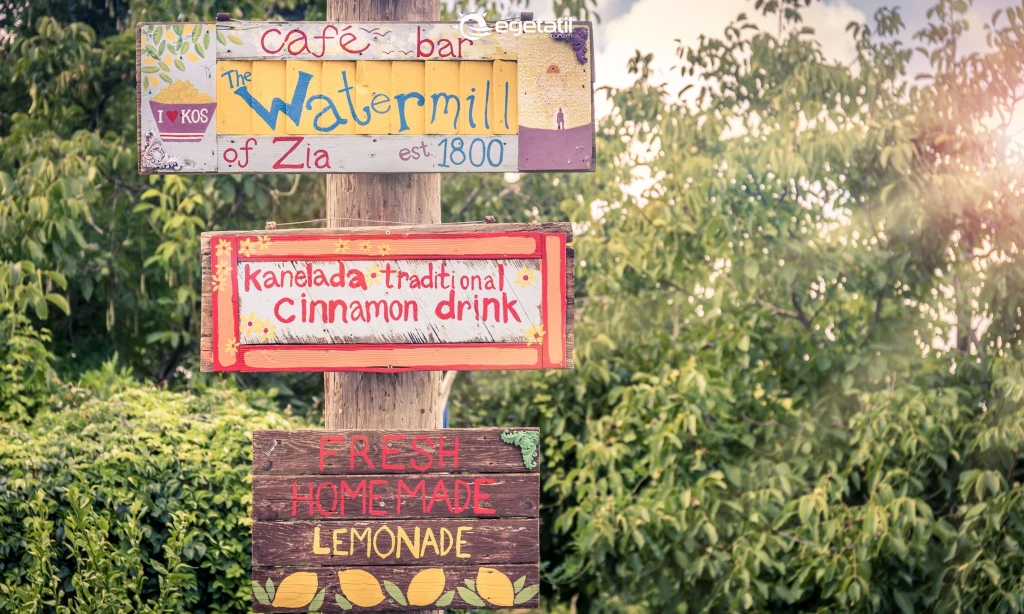 egetatil
café bar
The Watermill
I ♥ KOS
of Zia est. 1800
kanelada • traditional
cinnamon drink
FRESH
HOMEMADE
LEMONADE